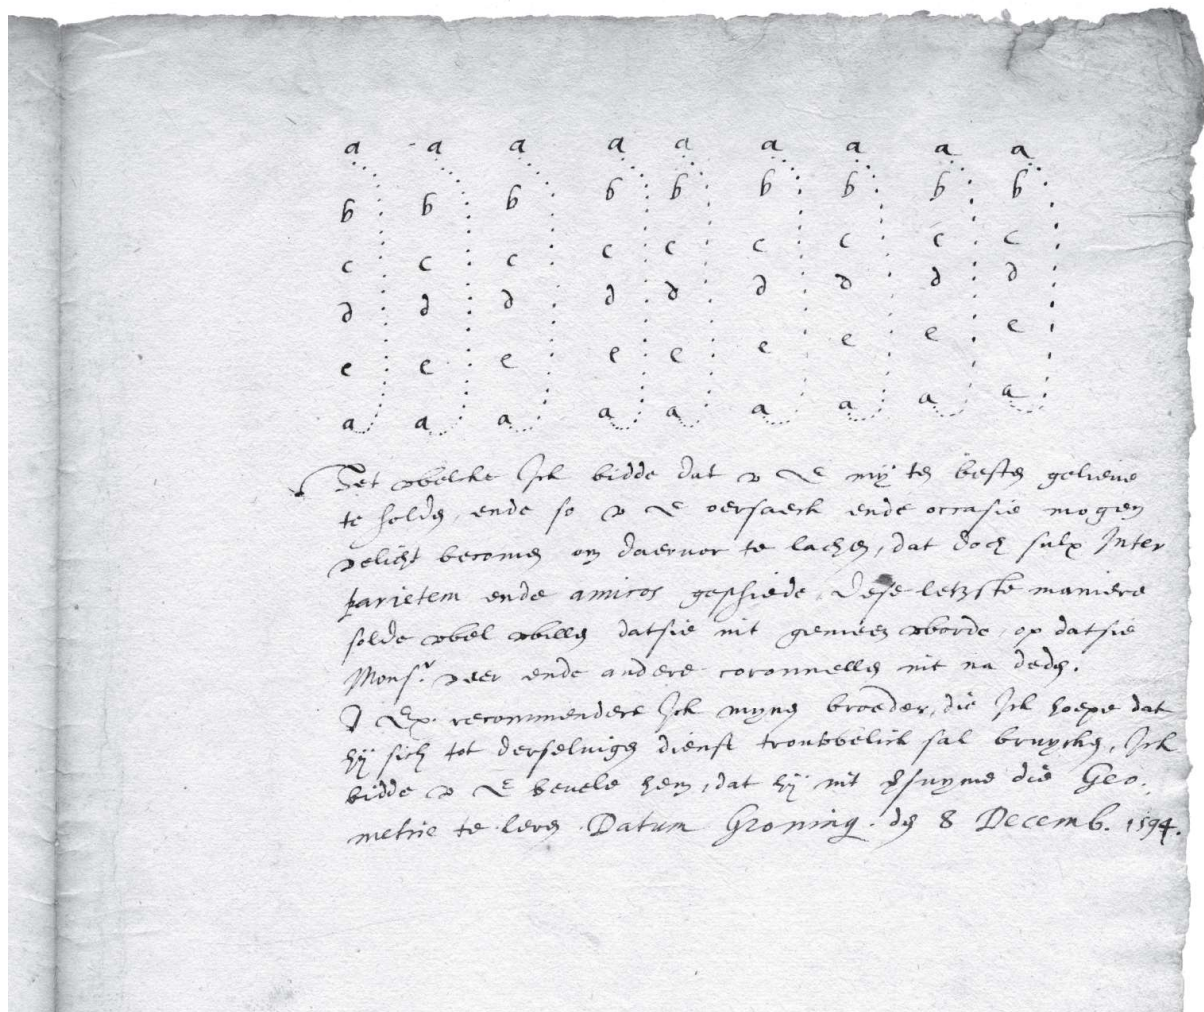 a a a a a a a a a
b b b b b b b b b
c c c c c c c c c
d d d d d d d d d
e e e e e e e e e
a a a a a a a a a
Het welcke Ick bidde dat v E my ten besten gelieve
te holden, ende so v E oersaeck ende occasie mogen
velicht becomen om daervor te lachen, dat doch sulx Inter
parietem ende amicos geschiede. Dese letzste maniere
solde wel willen datsie nit gemeen worde, op datsie
Mons.r veer ende andere coronnellen nit na deden.
V Ex. recommendere Ick mynen broeder, die Ick hoepe dat
hij sich tot derselvigen dienst trouwelick sal bruycken, Ick
bidde v E bevele hem, dat hij nit versuyme die Geo-
metrie te leren. Datum Groning. den 8 Decemb. 1594.